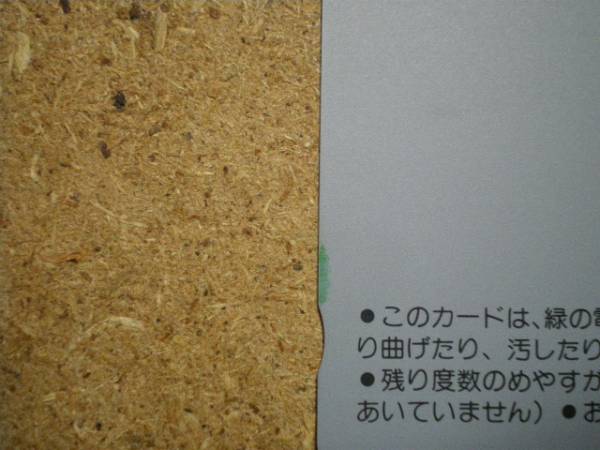 ●このカードは、緑の電
り曲げたり、汚したり
●残り度数のめやすが
あいていません）●お